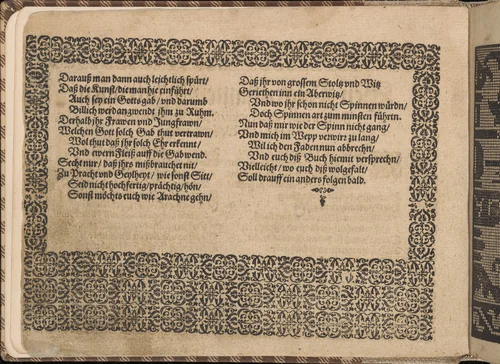 Darauß man dann auch leichtlich spürt/
Daß die Kunst/ die man hie einführt/
Auch sey ein Gotts gab/ vnd darumb
Billich werd angwendt ihm zu Ruhm.
Derhalb ihr Frawen vnd Jungfrawn/
Welchen Gott solch Gab thut vertrawn/
Wol thut daß ihr solch Ehr erkennt/
Vnd ewern Fleiß auff die Gab wend.
Secht nur/ daß ihrs mißbrauchet nit/
Zu Pracht vnd Gepläng/ wie sonst Sitt/
Seid nicht hochfertig/ prächtig/ hön/
Sonst möchts euch wie Arachne gehn/
Daß ihr von grossem Stoltz vnd Witz
Geriethen inn ein Aberwitz/
Vnd wo ihr schon nicht Spinnen würdn/
Doch Spinnen art zum minsten führtn.
Nun daß nur wie der Spinn nicht gang/
Vnd mich im Wepp verwirr zu lang/
Wil ich den Faden nun abbrechn/
Vnd euch diß Buch hiemit versprechn/
Vielleicht/ wo euch diß wolgefalt/
Soll drauff ein anders folgen bald.